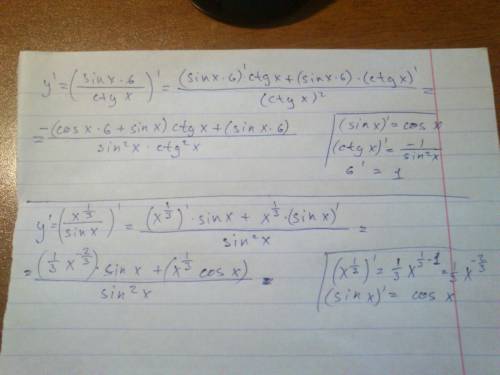 y' = (sinx·6 / ctg x)' = ((sinx·6)' ctgx + (sinx·6)·(ctgx)') / (ctg x)² =
= (-(cosx·6 + sinx) ctgx + (sinx·6)) / (sin²x · ctg²x)
(sinx)' = cosx
(ctgx)' = -1/sin²x
6' = 1
y' = (x^(1/3) / sinx)' = ((x^(1/3))' · sinx + x^(1/3) · (sinx)') / sin²x =
= ((1/3 x^(-2/3)) · sinx + (x^(1/3) cosx)) / sin²x =
(x^(1/3))' = 1/3 x^(1/3 - 1) = 1/3 x^(-2/3)
(sinx)' = cosx